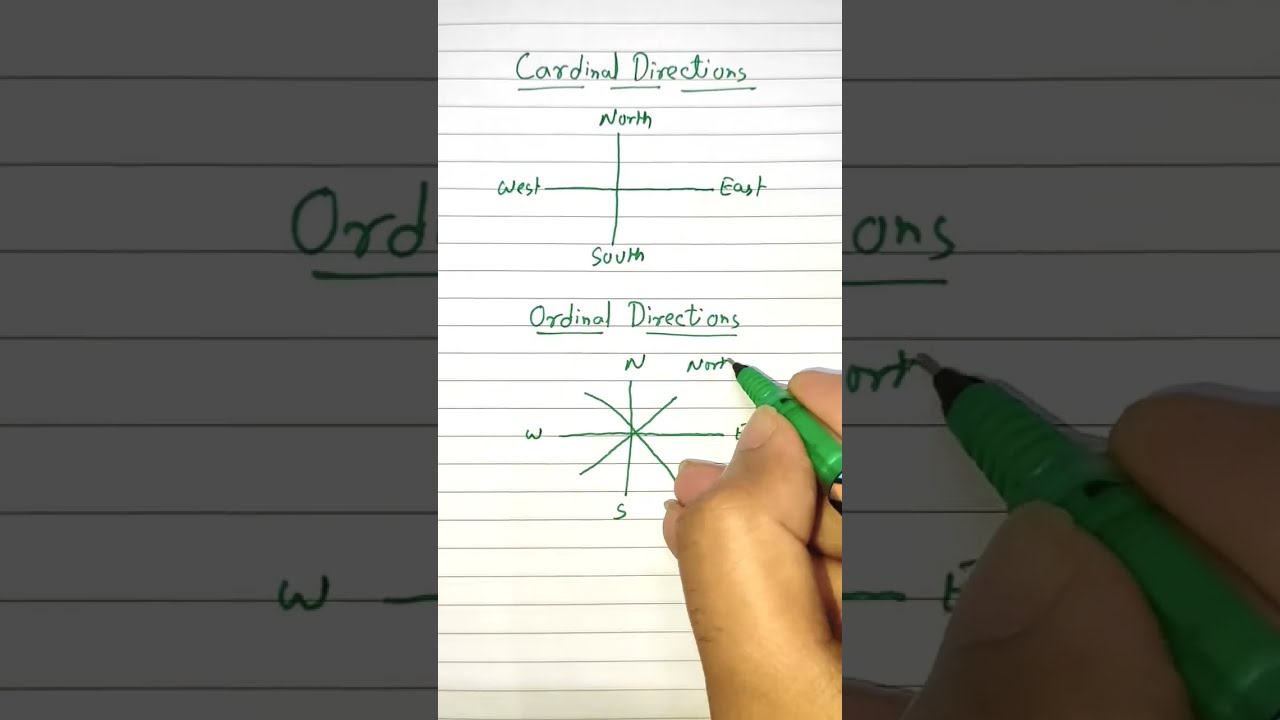 Cardinal Directions
North
West East
South
Ordinal Directions
N Nort
W E
S